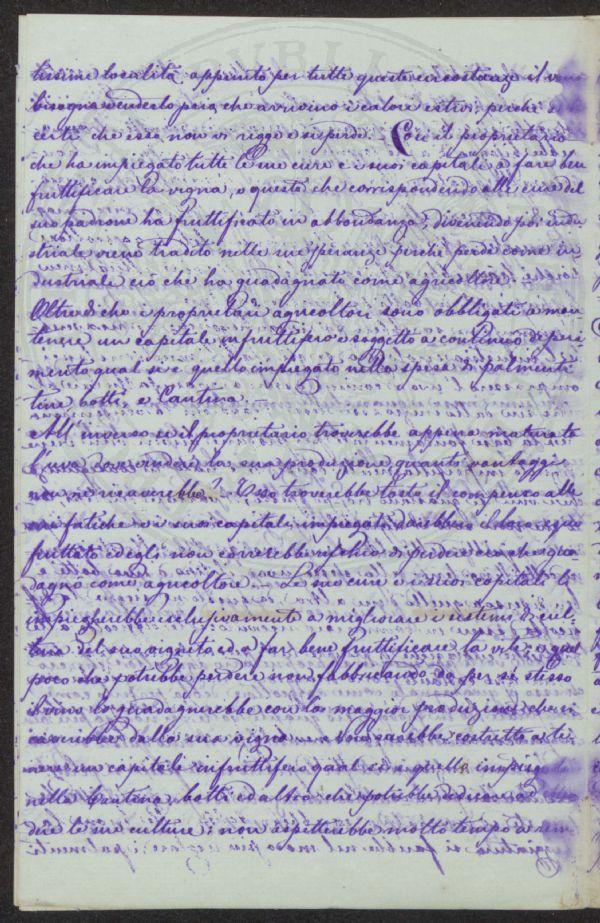 tissime località appunto per tutte queste circostanze il vino
bisogna venderlo pria che arrivino i calore estivi, perché
certo che esso non vi regge e si perde. Così il proprietario
che ha impiegato tutte le sue cure e i suoi capitali a fare ben
fruttificare la vigna, e questa che corrispondendo alle cure del
suo padrone ha fruttificato in abbondanza, divenendo poi indu-
striale viene tradito nelle sue speranze perché perde come in-
dustriale ciò che ha guadagnato come agricoltore.
Oltre di che i proprietari agricoltori sono obbligati a man
tenere un capitale infruttifero e soggetto a continuo deperi
mento qual si è quello impiegato nella spesa di palmenti
tine botti, e Cantina.
All'inverso se il proprietario troverebbe appena maturate
l'uva da vendere la sua produzione quanti vantaggi
non ne ricaverebbe? Esso troverebbe tosto il compenso alle
sue fatiche e i suoi capitali impiegati darebbero il loro
fruttato ed egli non correrebbe rischio di perdere ciò che gua-
dagnò come agricoltore. Le sue cure e i suoi capitali li
impiegherebbe esclusivamente a migliorare i sistemi di cul-
tura del suo vigneto ed a far bene fruttificare la vite, e quel
poco che potrebbe perdere non fabbricando da per se stesso
il vino lo guadagnerebbe con la maggior produzione che ci
ricaverebbe dalla sua vigna e non sarebbe costretto a te
nere un capitale infruttifero qual si è quello impiegato
nella Cantina, botti ed altro che potrebbe dedicare ad
dire le sue culture; non aspetterebbe molto tempo a
si farebbe nel modo per i palmenti